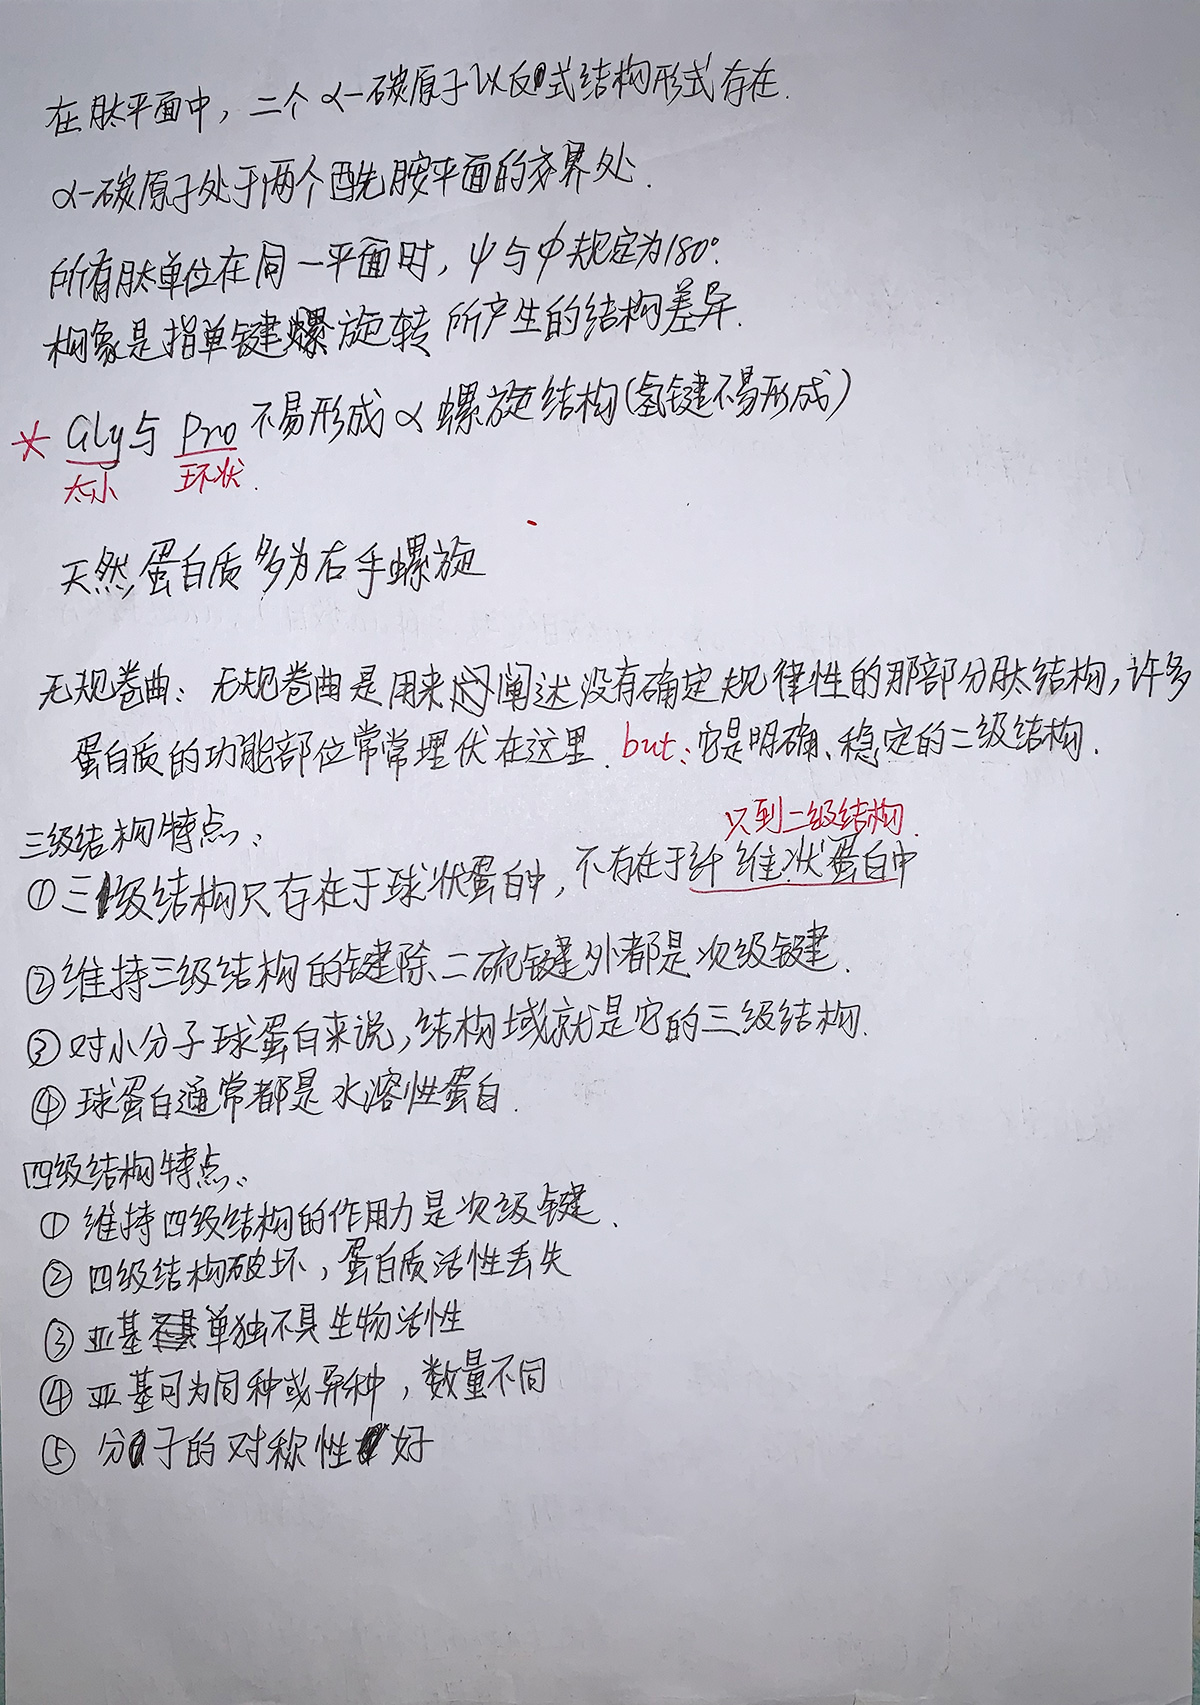 在肽平面中，二个α-碳原子以反式结构形式存在.
α-碳原子处于两个酰胺平面的交界处.
所有肽单位在同一平面时，ψ与φ规定为180°.
构象是指单键旋转所产生的结构差异.
* Gly与 Pro 不易形成α螺旋结构(氢键不易形成)
太小 环状.
天然蛋白质多为右手螺旋
无规卷曲：无规卷曲是用来阐述没有确定规律性的那部分肽结构，许多
蛋白质的功能部位常常埋伏在这里. but：它是明确、稳定的二级结构.
只到二级结构.
三级结构特点：
①三级结构只存在于球状蛋白中，不存在于纤维状蛋白中
②维持三级结构的键除二硫键外都是次级键.
③对小分子球蛋白来说，结构域就是它的三级结构.
④球蛋白通常都是水溶性蛋白.
四级结构特点：
①维持四级结构的作用力是次级键.
②四级结构破坏，蛋白质活性丢失
③亚基单独不具生物活性
④亚基可为同种或异种，数量不同
⑤分子的对称性好